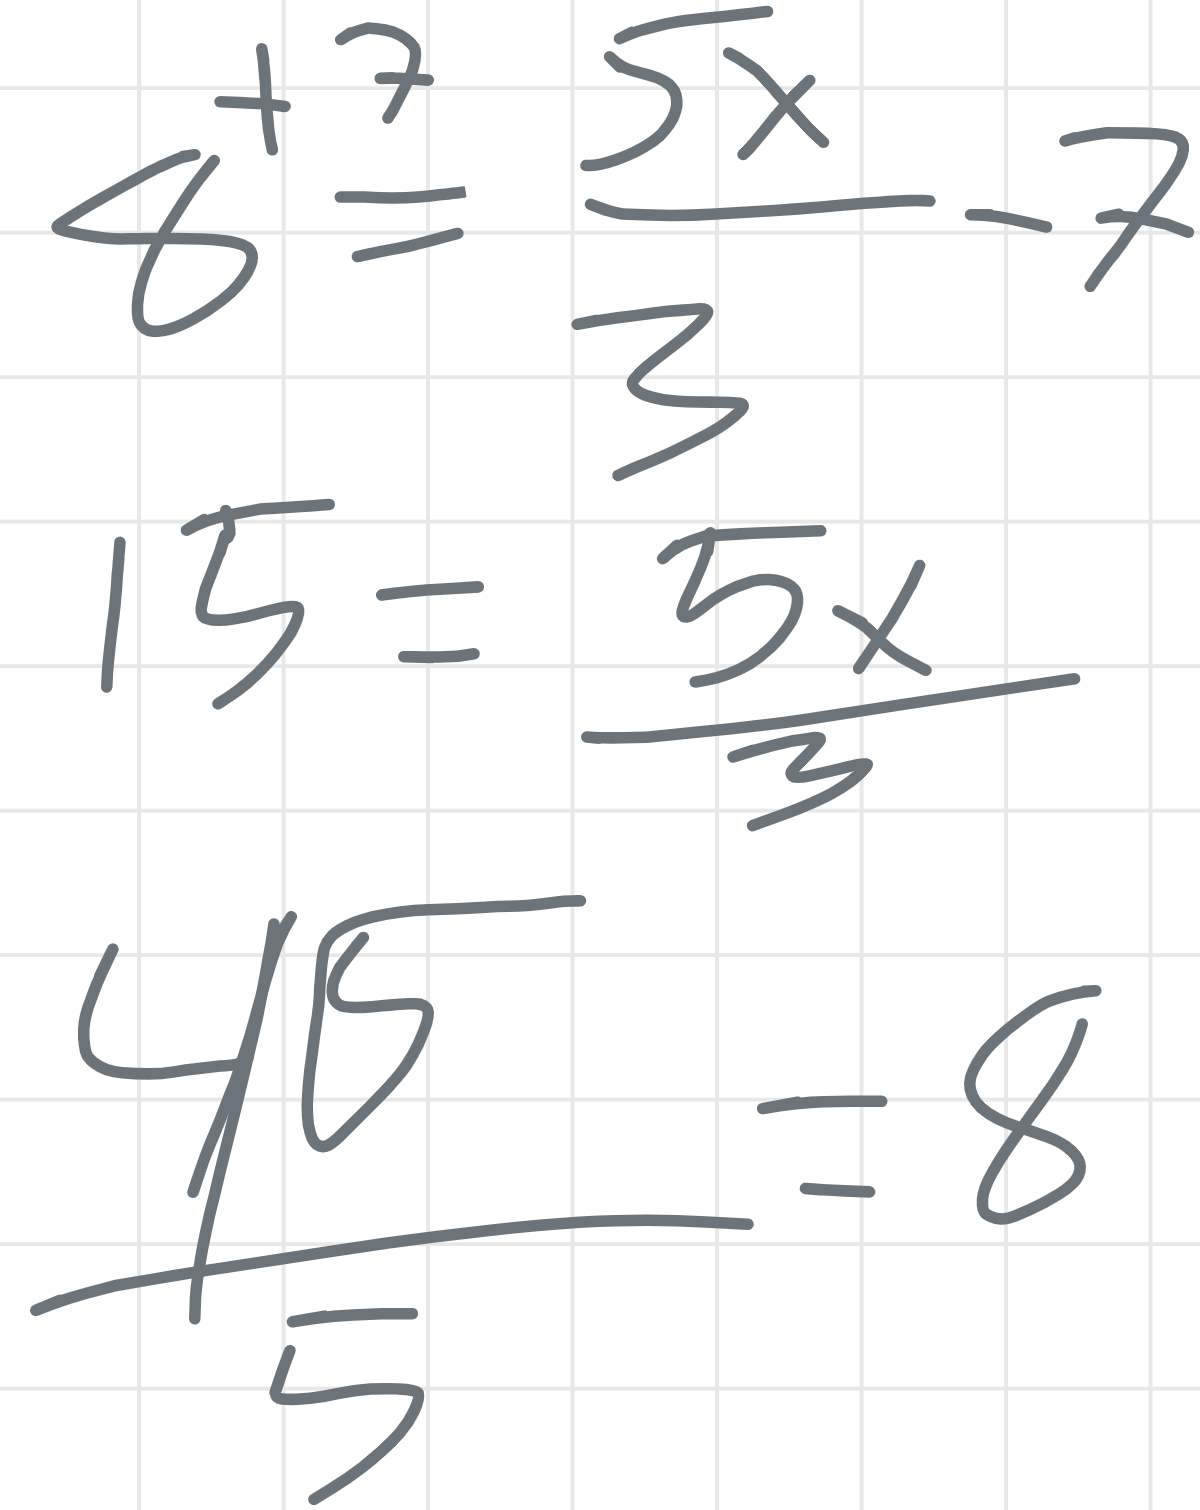 8 + 7 = 5x/3 - 7
15 = 5x/3
45/5 = 8